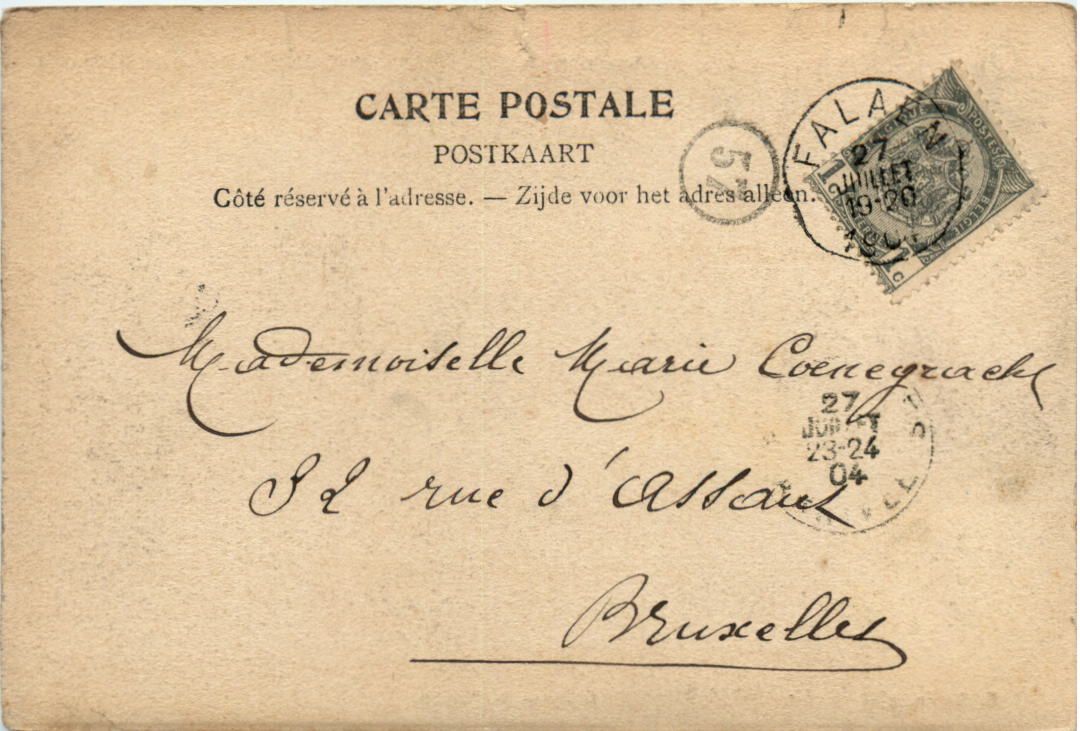 CARTE POSTALE
POSTKAART
Côté réservé à l'adresse. — Zijde voor het adres alleen.
FALAEN
27
JUILLET
19-20
1904
Mademoiselle Marie Coenegracht
32 rue d'Assaut
27
JUILLET
23-24
04
Bruxelles